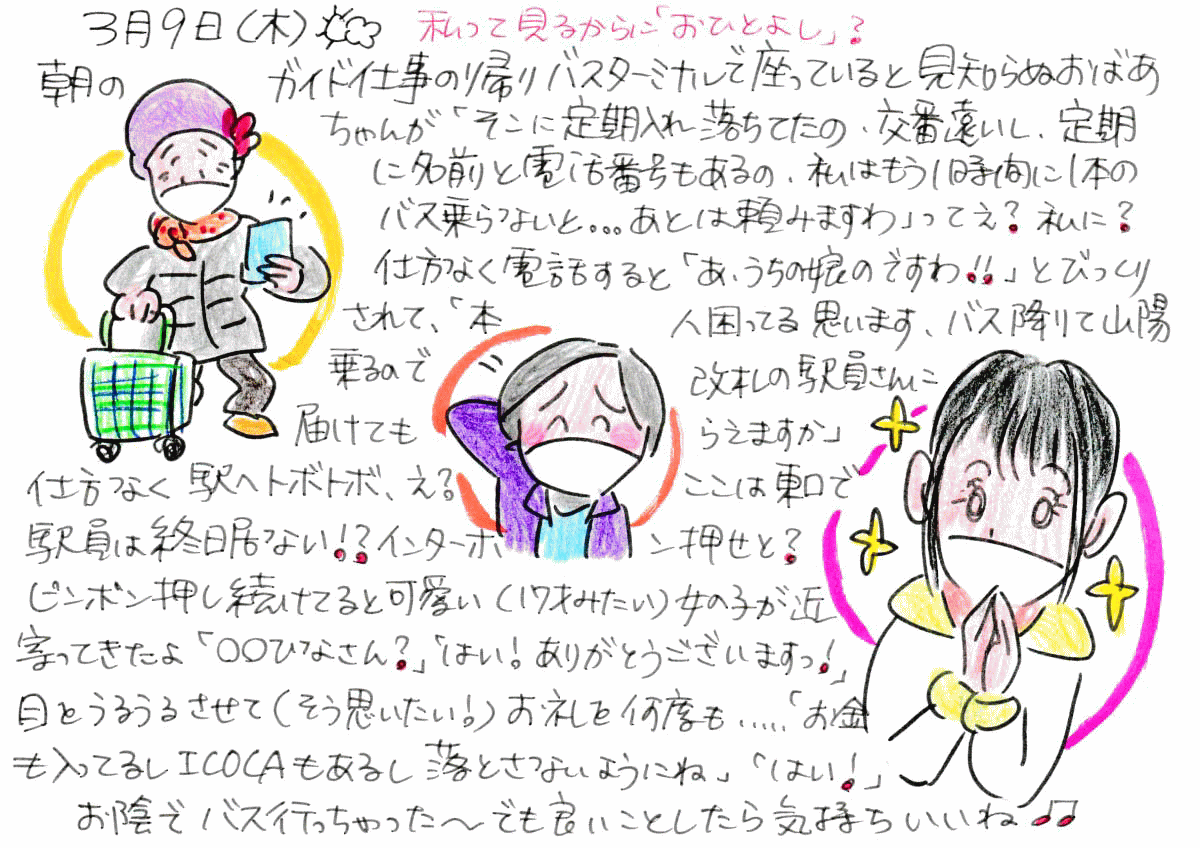 3月9日(木) 私って見るからに「おひとよし」?
朝の ガイド仕事の帰りバスターミナルで座っていると見知らぬおばあ
ちゃんが「そこに定期入れ落ちてたの、交番遠いし、定期
に名前と電話番号もあるの、私はもう1時間に1本の
バス乗らないと...あとは頼みますわ」ってえ?私に?
仕方なく電話すると「あ、うちの娘のですわ!!」とびっくり
されて、「本人困ってる思います、バス降りて山陽
乗るので改札の駅員さんに
届けてもらえますか」
仕方なく駅へトボトボ、え?ここは東口で
駅員は終日居ない!?インターホン押せと?
ピンポン押し続けてると可愛い(17才みたい)女の子が近
寄ってきたよ「〇〇ひなさん?」「はい!ありがとうございますっ!」
目をうるうるさせて(そう思いたい!)お礼を何度も.....「お金
も入ってるしICOCAもあるし落とさないようにね」「はい!」
お陰でバス行っちゃった〜でも良いことしたら気持ちいいね♫